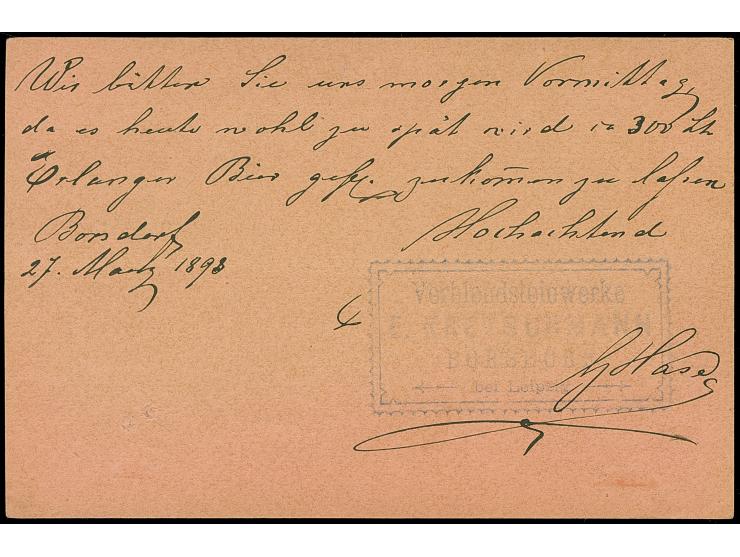 Wir bitten Sie uns morgen Vormittag,
da es heute wohl zu spät wird ca 300 Lt.
Erlanger Bier gefl. zukom̅en zu laßen
Borsdorf Hochachtend
27. März 1893
Verblendsteinwerke
E.
BORSDORF
bei Leipzig
G Hase